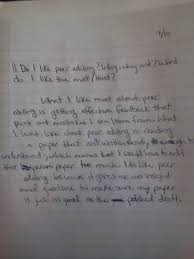 9/10
1) Do I like peer editing? Why, why not? What
do I like the most/least?
What I like most about peer
editing is getting effective feedback that
point out mistakes I can learn from. What
I least like about peer editing is reading
a paper that isn't written clearly to
understand, which means that I would have to edit
this person paper too much. I do like peer
editing because it gives me insight
and guidance to make sure my paper
is just as good as the polished draft.